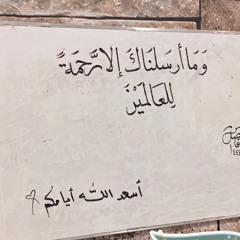 وَمَا أَرْسَلْنَاكَ إِلَّا رَحْمَةً
لِلْعَالَمِيْنَ
أسعد الله أيامكم